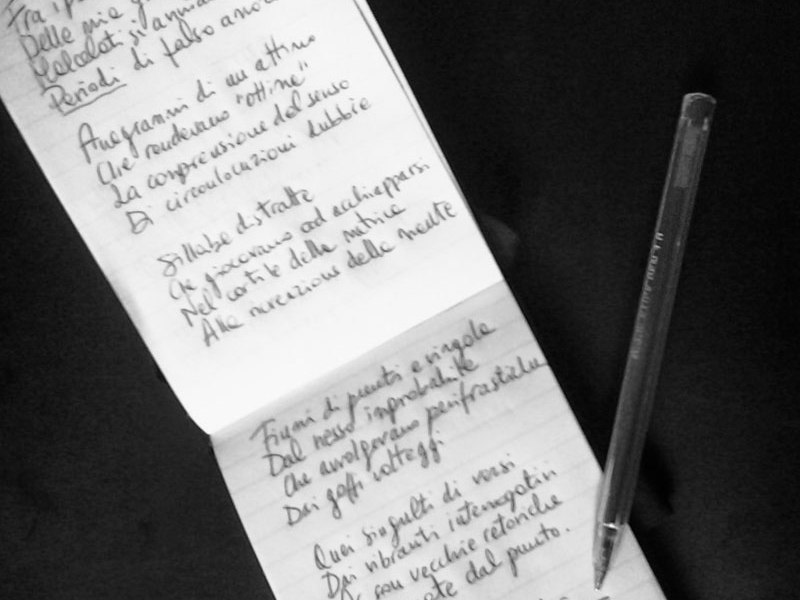 Fra i
Delle mie
Calcolati si
Periodi di falso
Anagrammi di un attimo
Che rendevano "ottima"
La comprensione del senso
Di circonlocuzioni dubbie
Sillabe distratte
Che giocavano ad acchiapparsi
Nel cortile della metrica
Alla ricreazione della mente
Fiumi di punti e virgole
Dal nesso improbabile
Che avvolgevano perifrastiche
Dai goffi volteggi
Quei singulti di versi
Dai vibranti interrogativi
con vecchie retoriche
dal punto.